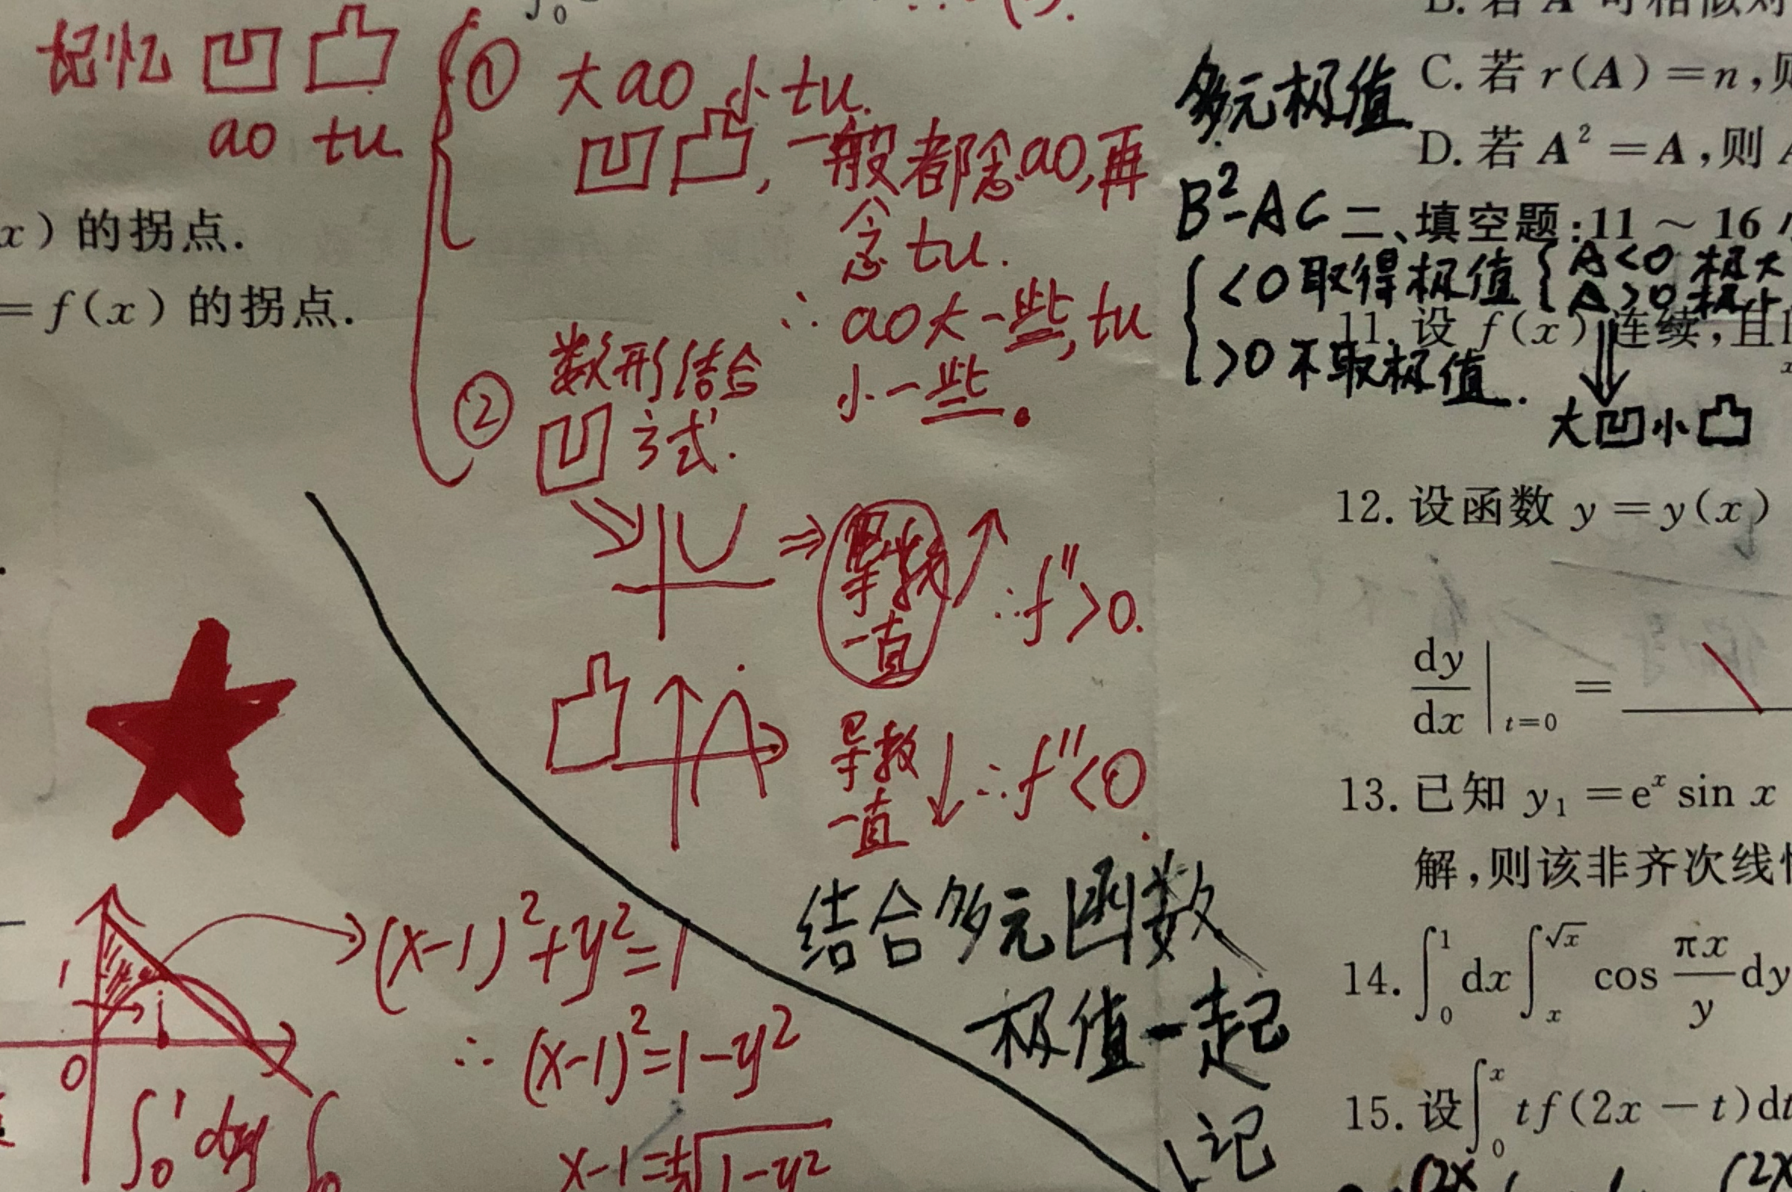 记忆 凹 凸
ao tu
① 大ao 小tu.
凹凸, 一般都念ao,再
念tu.
∴ ao大一些, tu
小一些。
② 数形结合
凹 方式.
⇒ 导数
一直 ↑ ∴f″>0.
凸
导数
一直 ↓ ∴f″<0.
x)的拐点.
=f(x)的拐点.
结合多元函数
极值一起
记
1
0
(x-1)²+y²=1
∴ (x-1)²=1-y²
x-1=±√1-y²
∫₀¹ dy ∫
多元极值
B²-AC
<0 取得极值 { A<0 极大
A>0 极小
>0 不取极值.
⇓
大凹小凸
C. 若 r(A)=n,则
D. 若 A²=A,则 A
二、填空题:11～16 小
11. 设 f(x) 连续,且
12. 设函数 y=y(x)
dy/dx|t=0 =
13. 已知 y₁=eˣ sin x
解,则该非齐次线性
14. ∫₀¹ dx ∫ₓ^√x cos πx/y dy
15. 设∫₀ˣ tf(2x-t)dt